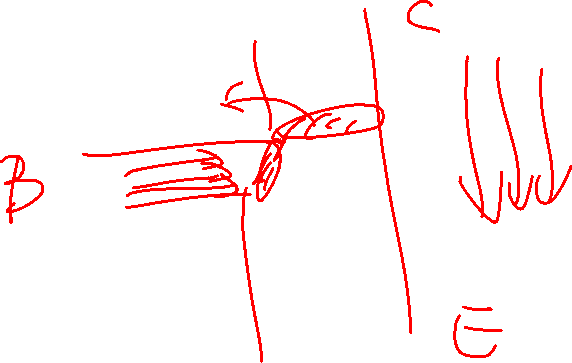 C
B
E